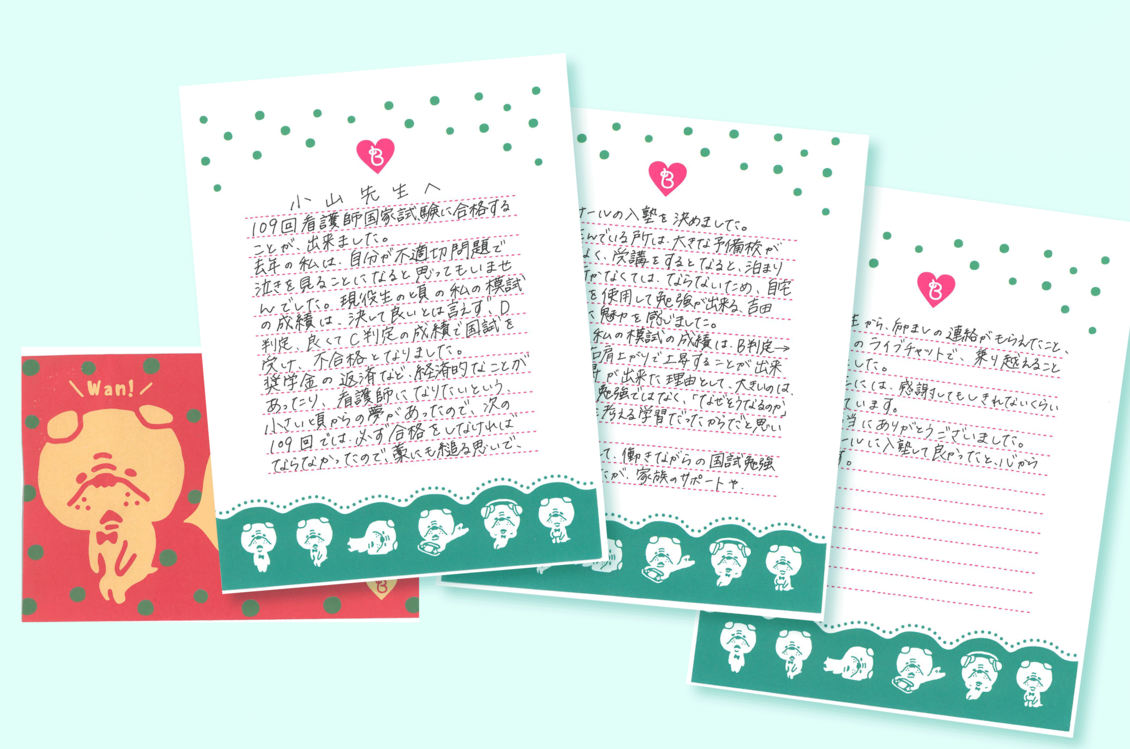 Wan!
B
小山先生へ
109回看護師国家試験に合格する
ことが、出来ました。
去年の私は、自分が不適切問題で
泣きを見ることになると思ってもいませ
んでした。現役生の頃の私の模試
の成績は、決して良いとは言えず、D
判定、良くてC判定の成績で国試を
受け、不合格となりました。
奨学金の返済など、経済的なことが
あったり、看護師になりたいという
小さい頃からの夢があったので、次の
109回では、必ず合格をしなければ
ならなかったので、藁にも縋る思いで、
B
ールの入塾を決めました。
んでいる所は、大きな予備校が
なく、受講をするとなると、泊まり
がなくては、ならないため、自宅
を使用して勉強が出来る、吉田
に魅力を感いました。
私の模試の成績は、B判定→
右肩上がりで上昇することが出来
が出来た理由として、大きいのは、
勉強ではなく、「なぜそうなるのか」
考える学習だったからだと思い
て、働きながらの国試勉強
たが、家族のサポートや、
B
から、励ましの連絡がもらえたこと、
のライブチャットで、乗り越えること
した。
には、感謝してもしきれないくらい
ています。
当にありがとうございました。
ールに入塾して良かったと、心から
す。
B